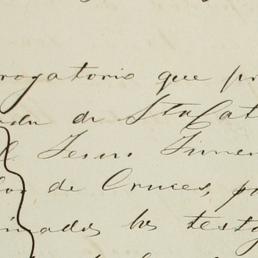 rogatorio que pr
nda de Sta Cat
l Jesus Jimen
los de Cruces, p
inados los testg